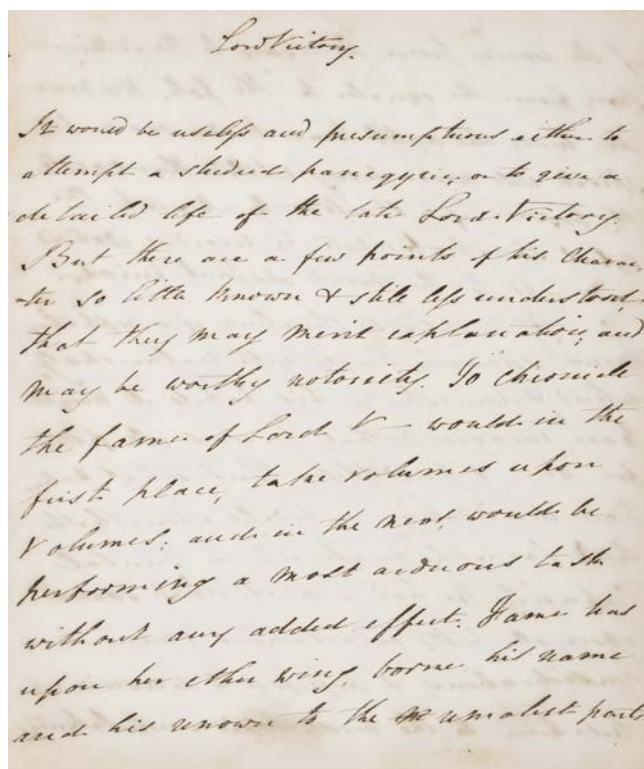 Lord Victory.
It would be useless and presumptuous either to
attempt a studied panegyric, or to give a
detailed life of the late Lord Victory.
But there are a few points of his Charac
-ter so little known & still less understood,
that they may merit explanation, and
may be worthy notoriety. To chronicle
the fame of Lord V— would in the
first place, take volumes upon
volumes; and in the next, would be
performing a most arduous task
without any added effect. Fame has
upon her ether wing, borne his name
and his renown to the remotest parts